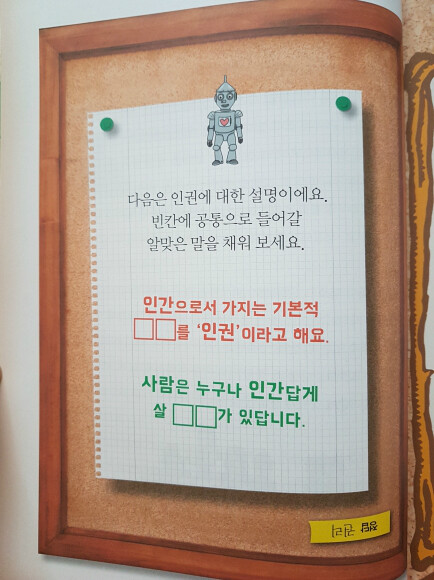 다음은 인권에 대한 설명이에요.
빈칸에 공통으로 들어갈
알맞은 말을 채워 보세요.
인간으로서 가지는 기본적
□□를 ‘인권’이라고 해요.
사람은 누구나 인간답게
살 □□가 있답니다.
정답 권리